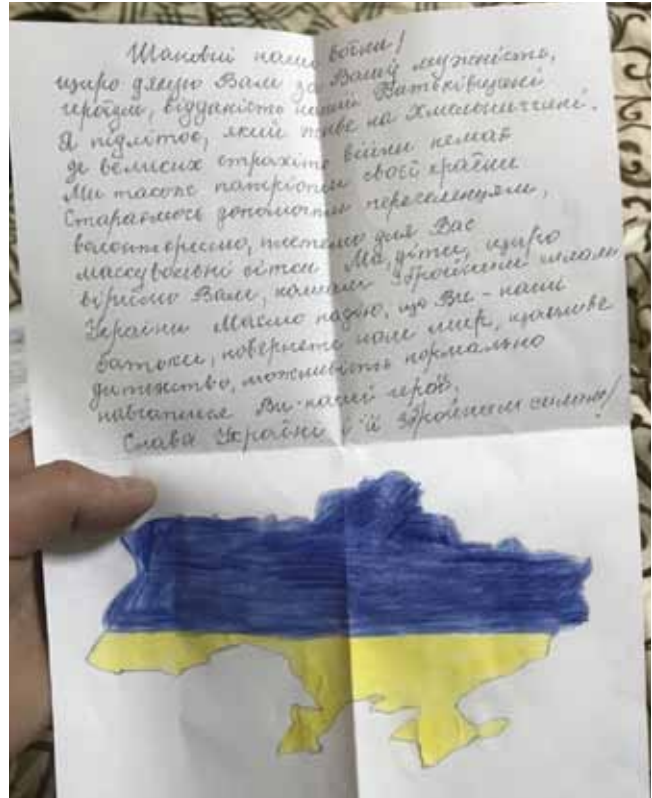 Шановні наші воїни!
щиро дякую Вам за Вашу мужність,
героїзм, відданість нашій Батьківщині
Я підліток, який живе на Хмельниччині,
де великих страхіть війни немає
Ми також патріоти своєї країни
Стараємось допомогти переселенцям,
волонтеримо, плетемо для Вас
маскувальні сітки Ми, діти, щиро
віримо Вам, нашим Збройним силам
України Маємо надію, що Ви - наші
батьки, повернете нам мир, щасливе
дитинство, можливість нормально
навчатися Ви-наші герої.
Слава Україні і її Збройним силам!